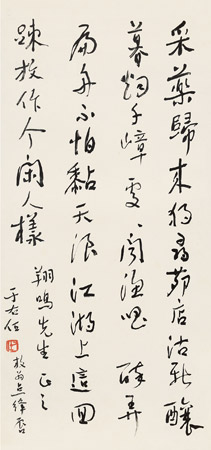 采藥歸來獨尋茆店沽新釀
暮烟千嶂處〻聞漁唱醉弄
扁舟不怕黏天浪江湖上這回
踈放作个閑人樣
翔鳴先生正之
于右任
放翁点絳唇